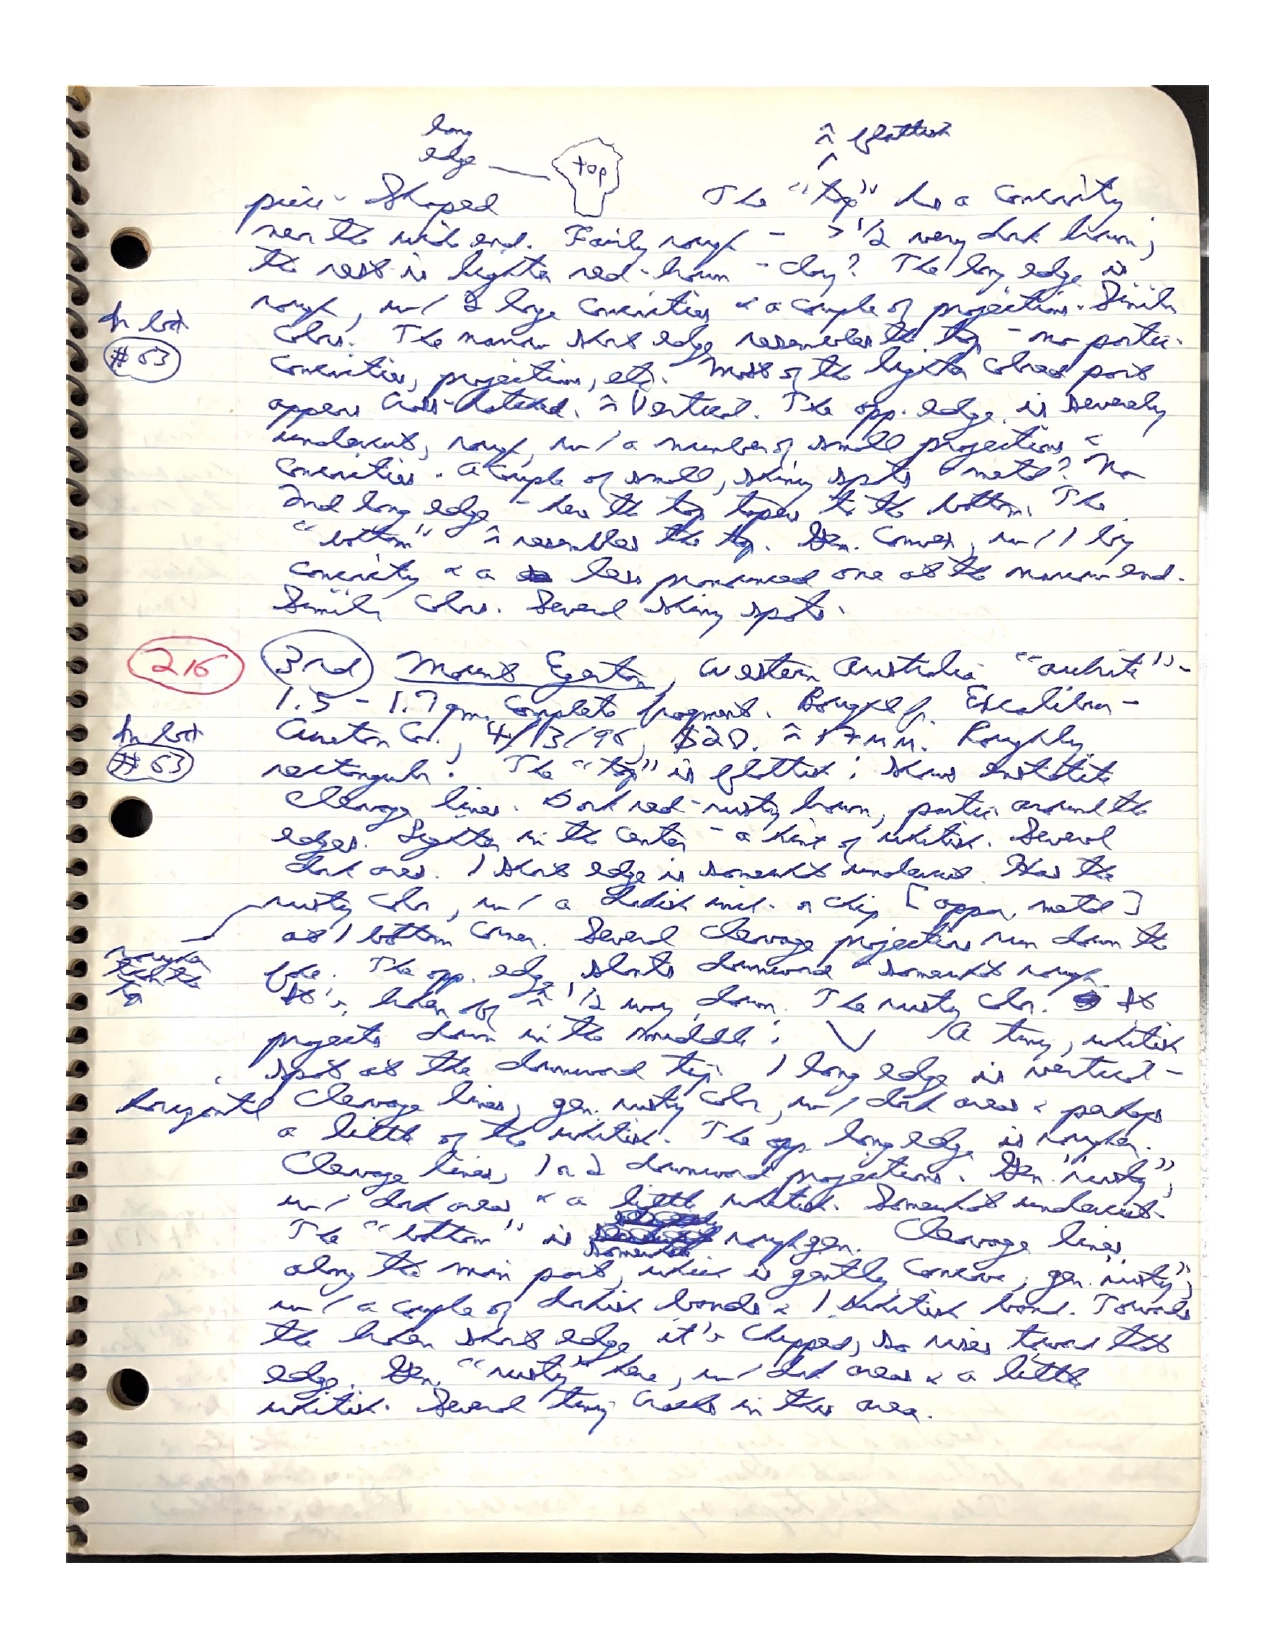 long
edge
top
≈ flattish
piece - Shaped The "top" has a concavity
near the wide end. Fairly rough - > 1/2 very dark brown;
the rest is lighter red-brown - clay? The long edge is
rough, w/ 2 large concavities & a couple of projections. Similar
In box
#63
colors. The narrow short edge resembles the top - no partic.
concavities, projections, etc. Most of the lighter colored part
appears cross-hatched. ≈ Vertical. The opp. edge is severely
undercut, rough, w/ a number of small projections &
concavities. A couple of small, shiny spots - metal? No
2nd long edge - here the top tapers to the bottom. The
"bottom" ≈ resembles the top. Gen. convex, w/ 1 big
concavity & a less pronounced one at the narrow end.
Similar colors. Several shiny spots.
216 3rd Mount Egerton, Western Australia "aubrite" -
1.5 - 1.7 gm. Complete fragment. Bought f. Excalibur-
In box
#63
Cureton Co., 4/13/96, $20. ≈ mm. Roughly
rectangular. The "top" is flattish; shows enstatite
cleavage lines. Dark red-rusty brown, partic. around the
edges. Lighter in the center - a hint of whitish. Several
dark areas. 1 short edge is somewhat undercut. Has the
rusty color, w/ a darkish incl. or chip [appar. metal]
at 1 bottom corner. Several cleavage projections run down the
rougher
than the
top
face. The opp. edge slants downward - somewhat rough.
It's broken off ≈ 1/2 way down. The rusty color. It
projects down in the middle: \/ A tiny, whitish
spot at the downward tip. 1 long edge is vertical -
horizontal cleavage lines, gen. rusty color, w/ dark areas & perhaps
a little of the whitish. The opp. long edge is rougher.
Cleavage lines, 1 or 2 downward projections. Gen. "rusty",
w/ dark areas & a little whitish. Somewhat undercut.
The "bottom" is somewhat rough gen. Cleavage lines
along the main part, which is gently concave, gen. "rusty",
w/ a couple of darkish bands & 1 whitish band. Towards
the broken short edge it's chipped, so rises toward that
edge. Gen. "rusty" here, w/ dark areas & a little
whitish. Several tiny cracks in this area.